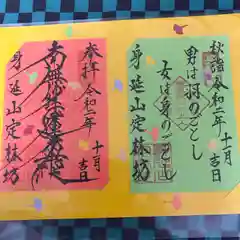 秋詣令和二年十一月吉日
男は羽のごとし
女は身のごとし
身延山定林坊
奉拝令和二年十一月吉日
南無妙法蓮華経
身延山定林坊